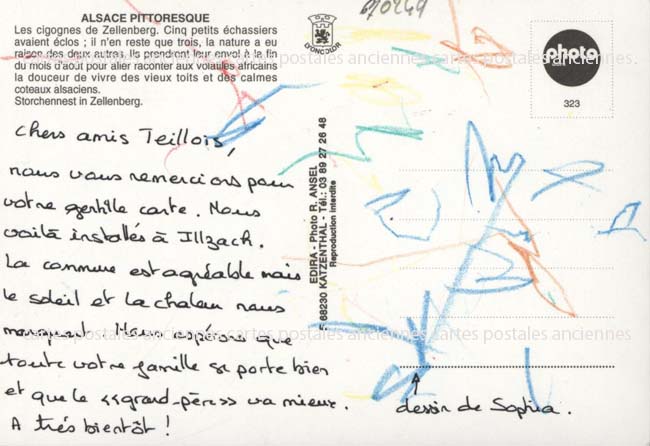 670249
ALSACE PITTORESQUE
Les cigognes de Zellenberg. Cinq petits échassiers
avaient éclos ; il n'en reste que trois, la nature a eu
raison des deux autres. Ils prendront leur envol à la fin
du mois d'août pour aller raconter aux volatiles africains
la douceur de vivre des vieux toits et des calmes
coteaux alsaciens.
Storchennest in Zellenberg.
Chers amis Teillois,
nous vous remercions pour
votre gentille carte. Nous
voilà installés à Illzach.
La commune est agréable mais
le soleil et la chaleur nous
manquent. Nous espérons que
toute votre famille se porte bien
et que le <<grand-père>> va mieux.
A très bientôt !
EDIRA - Photo R. ANSEL
F 68230 KATZENTHAL - Tél.: 03 89 27 26 48
Reproduction interdite
photo
323
dessin de Sophia.
cartes postales anciennes cartes postales anciennes